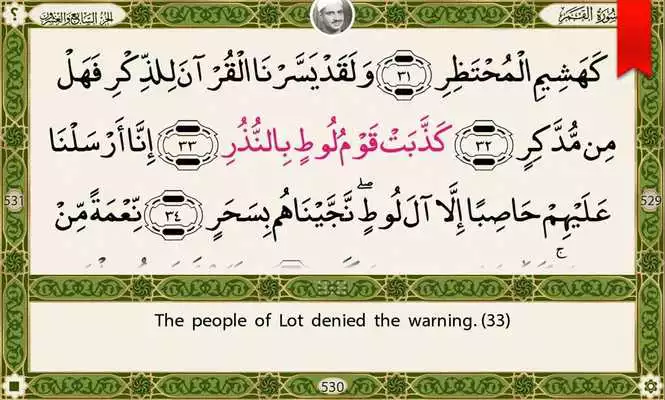 ؟
الجزء السابع والعشرون
سورة القمر
كَهَشِيمِ الْمُحْتَظِرِ ٣١ وَلَقَدْ يَسَّرْنَا الْقُرْآنَ لِلذِّكْرِ فَهَلْ
مِن مُّدَّكِرٍ ٣٢ كَذَّبَتْ قَوْمُ لُوطٍ بِالنُّذُرِ ٣٣ إِنَّا أَرْسَلْنَا
عَلَيْهِمْ حَاصِبًا إِلَّا آلَ لُوطٍ ۖ نَّجَّيْنَاهُم بِسَحَرٍ ٣٤ نِّعْمَةً مِّنْ
531
529
The people of Lot denied the warning. (33)
530